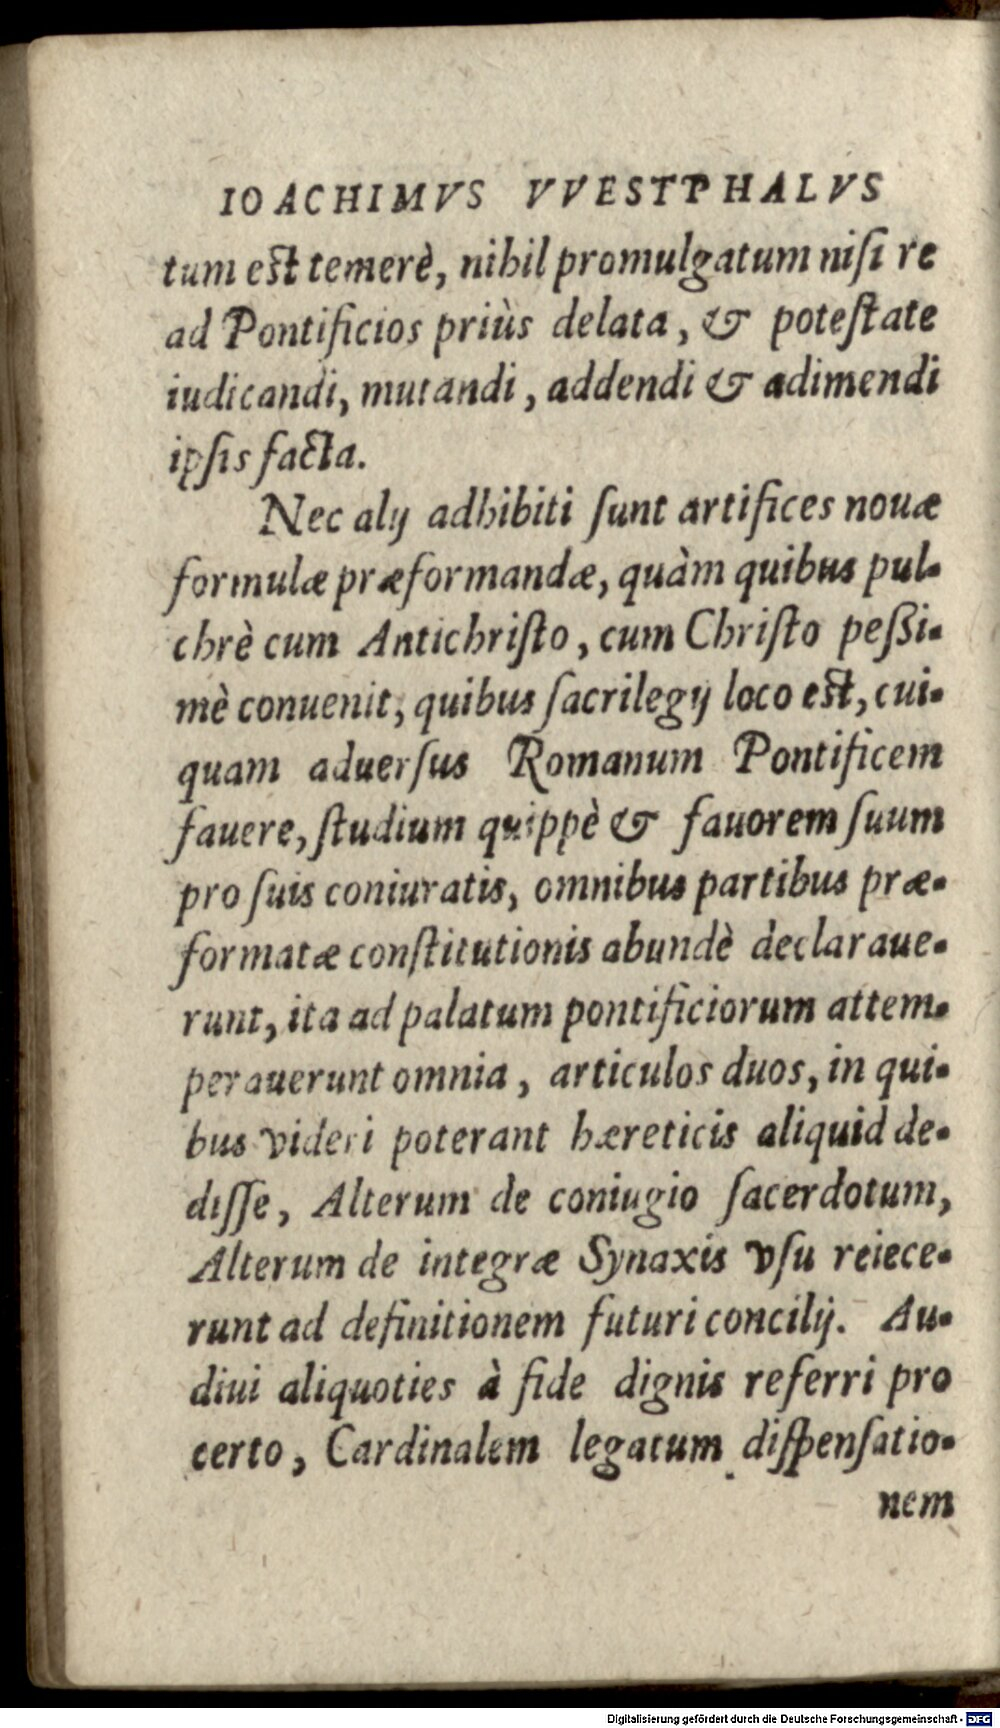 IOACHIMVS VVESTPHALVS
tum est temerè, nihil promulgatum nisi re
ad Pontificios priùs delata, & potestate
iudicandi, mutandi, addendi & adimendi
ipsis facta.
Nec alij adhibiti sunt artifices nouæ
formulæ præformandæ, quàm quibus pul-
chrè cum Antichristo, cum Christo peßi-
mè conuenit, quibus sacrilegij loco est, cui-
quam aduersus Romanum Pontificem
fauere, studium quippè & fauorem suum
pro suis coniuratis, omnibus partibus præ-
formatæ constitutionis abundè declaraue-
runt, ita ad palatum pontificiorum attem-
perauerunt omnia, articulos duos, in qui-
bus videri poterant hæreticis aliquid de-
disse, Alterum de coniugio sacerdotum,
Alterum de integræ Synaxis vsu reiece-
runt ad definitionem futuri concilij. Au-
diui aliquoties à fide dignis referri pro
certo, Cardinalem legatum dispensatio-
nem
Digitalisierung gefördert durch die Deutsche Forschungsgemeinschaft - DFG